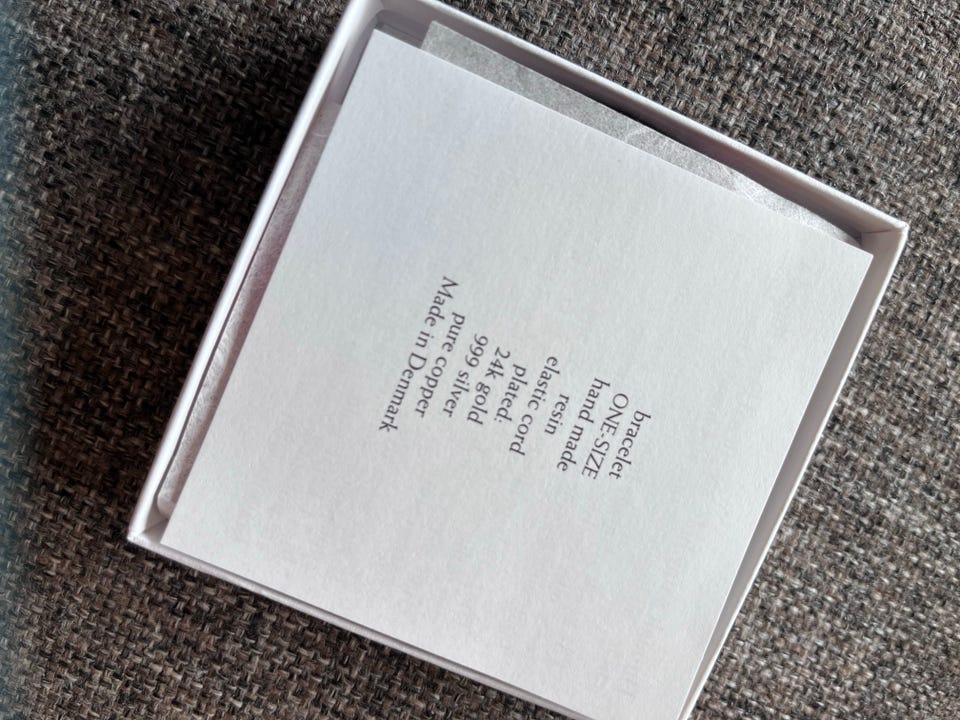 bracelet
ONE-SIZE
hand made
resin
elastic cord
plated:
24k gold
999 silver
pure copper
Made in Denmark